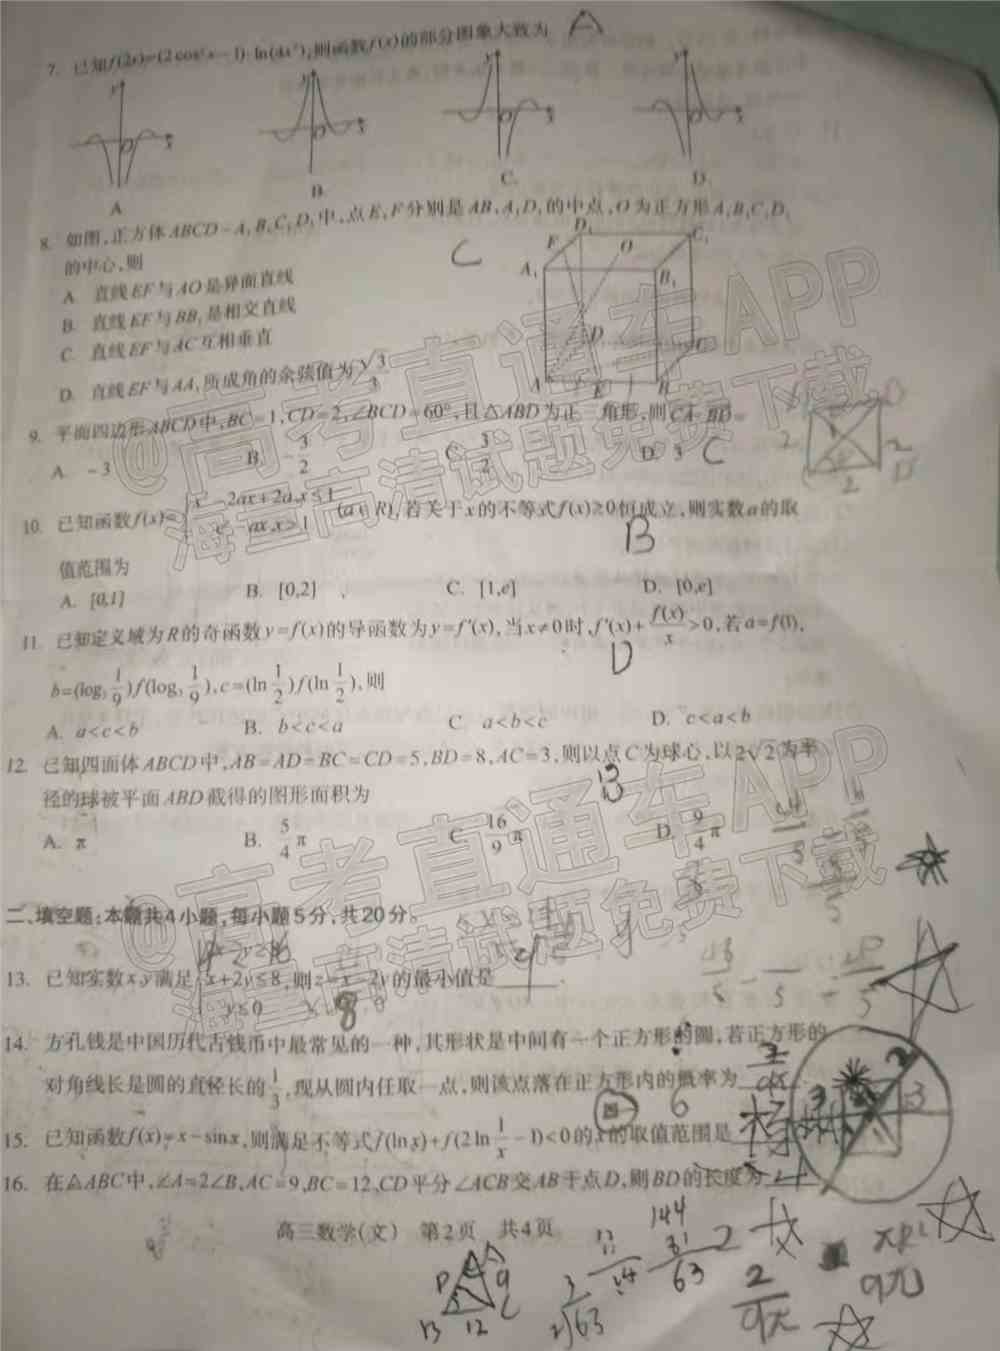 7. 已知f(2x)=(2cos²x-1)·ln(4x²),则函数f(x)的部分图象大致为 A
A B. C. D.
8. 如图,正方体ABCD-A₁B₁C₁D₁中,点E,F分别是AB,A₁D₁的中点,O为正方形A₁B₁C₁D₁
的中心,则 C
A. 直线EF与AO是异面直线
B. 直线EF与BB₁是相交直线
C. 直线EF与AC互相垂直
D. 直线EF与AA₁所成角的余弦值为√3/3
9. 平面四边形ABCD中,BC=1,CD=2,∠BCD=60°,且△ABD为正三角形,则CA·BD=
A. -3 B. -3/2 C. 3/2 D. 3 C
10. 已知函数f(x)={x²-2ax+2a,x≤1 eˣ-ax,x>1 (a∈R),若关于x的不等式f(x)≥0恒成立,则实数a的取
值范围为 B
A. [0,1] B. [0,2] C. [1,e] D. [0,e]
11. 已知定义域为R的奇函数y=f(x)的导函数为y=f'(x),当x≠0时,f'(x)+f(x)/x>0,若a=f(1),
b=(log₃1/9)f(log₃1/9),c=(ln1/2)f(ln1/2),则 D
A. a<c<b B. b<c<a C. a<b<c D. c<a<b
12. 已知四面体ABCD中,AB=AD=BC=CD=5,BD=8,AC=3,则以点C为球心,以2√2为半
径的球被平面ABD截得的图形面积为 B
A. π B. 5/4π C. 16/9π D. 9/4π
二、填空题:本题共4小题,每小题5分,共20分。
13. 已知实数x,y满足 x+2y≤8,则z=x-2y的最小值是
14. 方孔钱是中国历代古钱币中最常见的一种,其形状是中间有一个正方形的圆,若正方形的
对角线长是圆的直径长的1/3,现从圆内任取一点,则该点落在正方形内的概率为
15. 已知函数f(x)=x-sinx,则满足不等式f(lnx)+f(2ln1/x-1)<0的x的取值范围是
16. 在△ABC中,∠A=2∠B,AC=9,BC=12,CD平分∠ACB交AB于点D,则BD的长度为
高三数学(文) 第2页 共4页
@高考直通车APP
海量高清试题免费下载
@高考直通车APP
海量高清试题免费下载